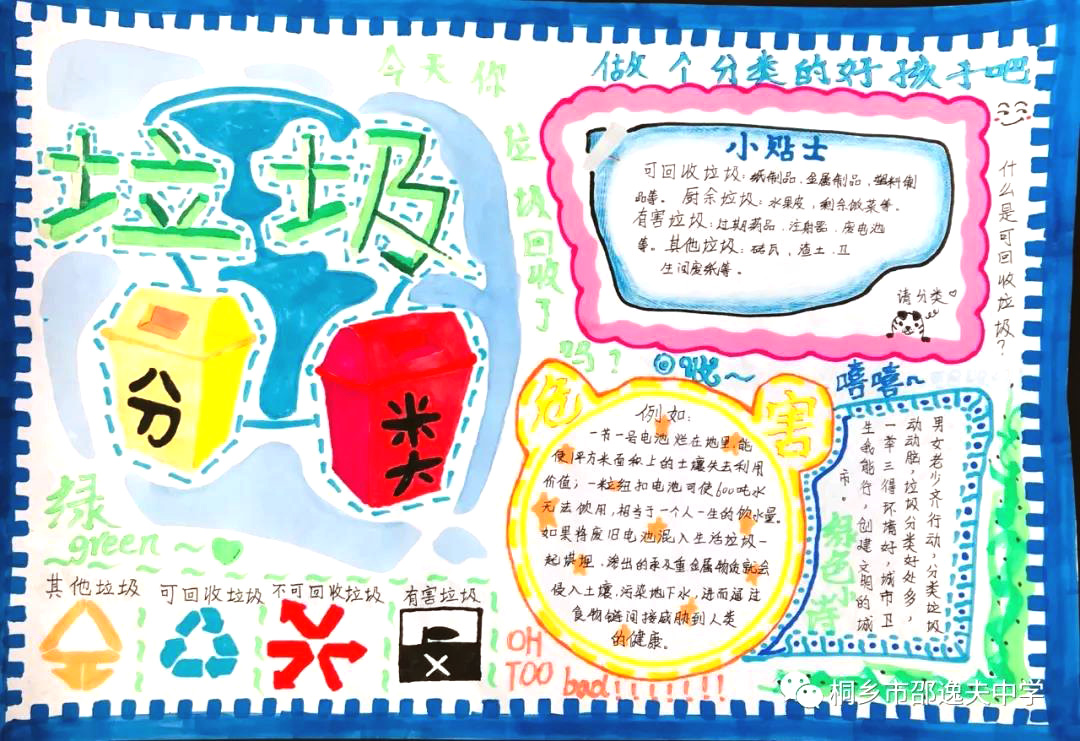 垃圾
分
类
今天你
垃圾回收了
吗?
做个分类的好孩子吧
小贴士
可回收垃圾:纸制品、金属制品、塑料制
品等。厨余垃圾:水果皮,剩余饭菜等。
有害垃圾:过期药品、注射器、废电池
等。其他垃圾:砖瓦、渣土、卫
生间废纸等。
请分类
什么是可回收垃圾?
危害
例如:
一节一号电池烂在地里,能
使1平方米面积上的土壤失去利用
价值;一粒纽扣电池可使600吨水
无法饮用,相当于一个人一生的饮水量。
如果将废旧电池混入生活垃圾一
起填埋,渗出的汞及重金属物质就会
侵入土壤,污染地下水,进而通过
食物链间接威胁到人类
的健康。
嘻嘻
男女老少齐行动,分类垃圾
动动脑,垃圾分类好处多,
一举三得环境好,城市卫
生我能行,创建文明的城
市。
绿色小诗
绿
~green~
其他垃圾
可回收垃圾
不可回收垃圾
有害垃圾
OH
TOO bad!!!!!!!!
桐乡市邵逸夫中学